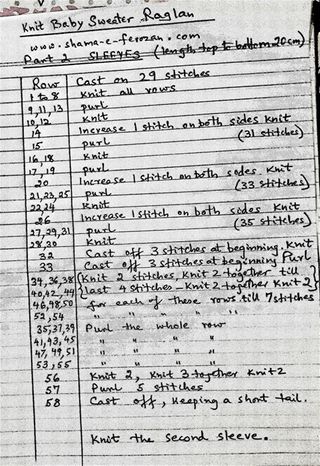 Knit Baby Sweater Raglan
www.shama-e-ferozan.com
Part 2 SLEEVES (length top to bottom 20cm)
Row Cast on 29 stitches
1 to 8 Knit all rows
9,11,13 purl
10,12 knit
14 Increase 1 stitch on both sides knit (31 stitches)
15 purl
16,18 knit
17,19 purl
20 Increase 1 stitch on both sides. Knit (33 stitches)
21,23,25 purl
22,24 Knit
26 Increase 1 stitch on both sides Knit (35 stitches)
27,29,31 purl
28,30 Knit
32 Cast off 3 stitches at beginning. Knit
33 Cast off 3 stitches at beginning Purl
34,36,38 Knit 2 stitches, Knit 2 together till
40,42,44 last 4 stitches - Knit 2 together Knit 2
46,48,50 for each of these rows till 7 stitches
52,54 " " " " "
35,37,39 Purl the whole row
41,43,45 " " " "
47,49,51 " " " "
53,55 " " " "
56 Knit 2, Knit 3 together Knit 2
57 Purl 5 stitches
58 Cast off, Keeping a short tail.
Knit the second sleeve.